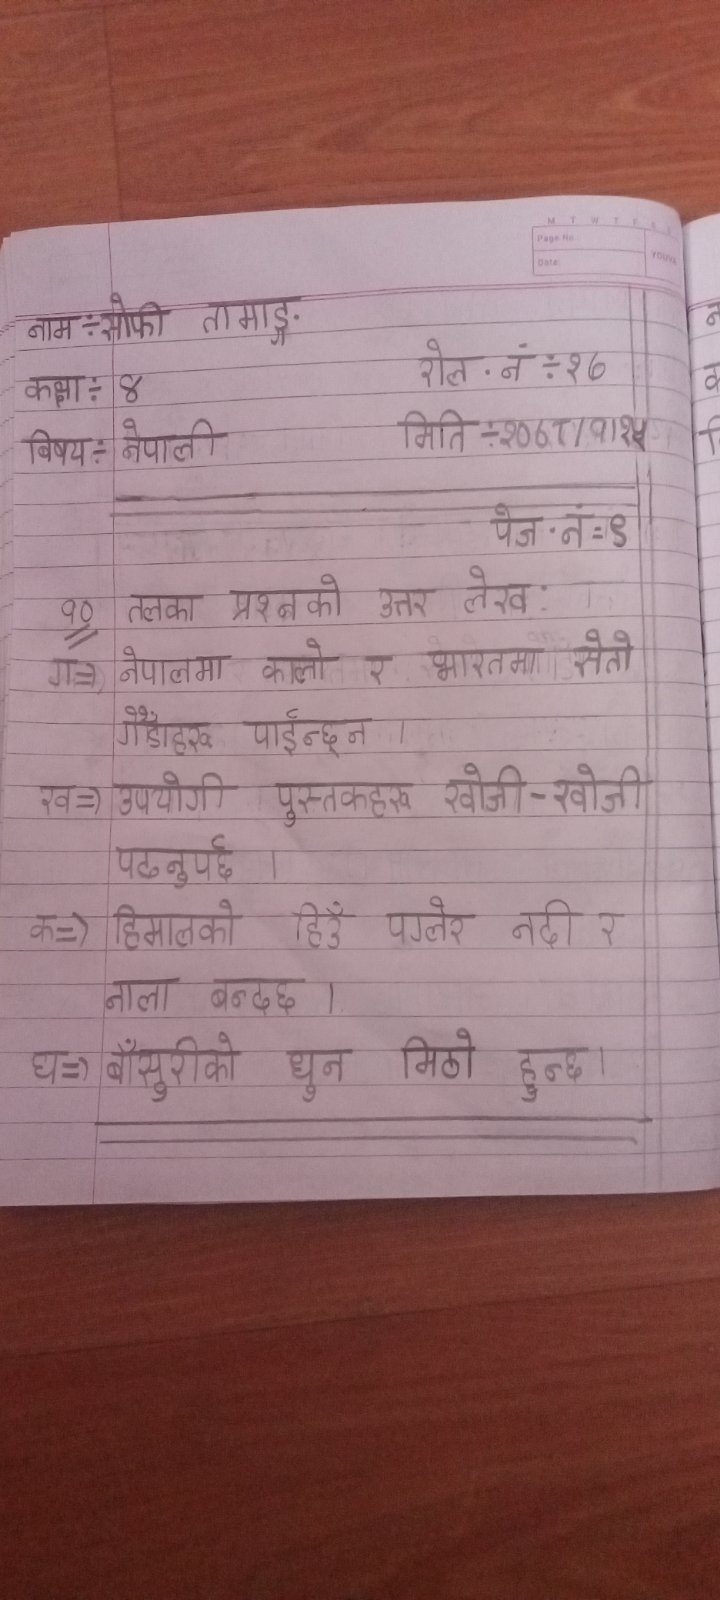 M T W T F S S
Page No.
Date:
YOUVA
नाम ÷ सोफी तामाङ्ग.
कक्षा ÷ ४ रोल . नं ÷ २७
बिषय ÷ नेपाली मिति ÷ २०७८/१/२५
पेज . नं = ९
१० तलका प्रश्नको उत्तर लेख :
ग⇒ नेपालमा कालो र भारतमा सेतो
गैंडाहरू पाईन्छन ।
ख⇒ उपयोगी पुस्तकहरू खोजी-खोजी
पढनुपर्छ ।
क⇒ हिमालको हिउँ पग्लेर नदी र
नाला बन्दछ ।
घ⇒ बाँसुरीको धुन मिठो हुन्छ ।